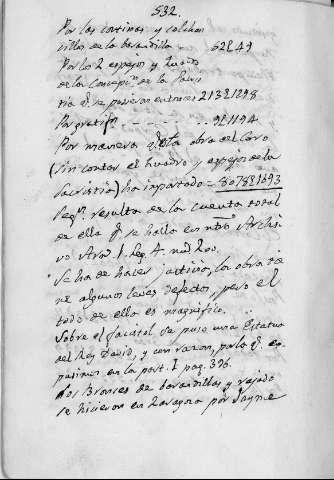 532.
Por las cortinas y colchon
cillos de la barandilla - 52249
Por los 2 espejos y quadro
de la Concepⁿ. de la Sacris
tia q.e se pusieron entonces 213
Por gratifⁿ - - - - - -
Por manera q. esta obra del Coro
(sin contar el quadro y espejos de la
Sacristia) ha importado =
segⁿ. resulta de la cuenta total
de ella q. se halla en ntro Archi
vo Arm. 1. Leg. 4. n. 200.
Se ha de hacer justicia, la obra tie
ne algunos leves defectos, pero el
todo de ella es magnifico.
Sobre el facistol se puso una Estatua
del Rey David, y con razon, por lo q. ex
pusimos en la part. I pag. 396.
Los Bronces de barandillas y rejado
se hicieron en Zaragoza por Jayme